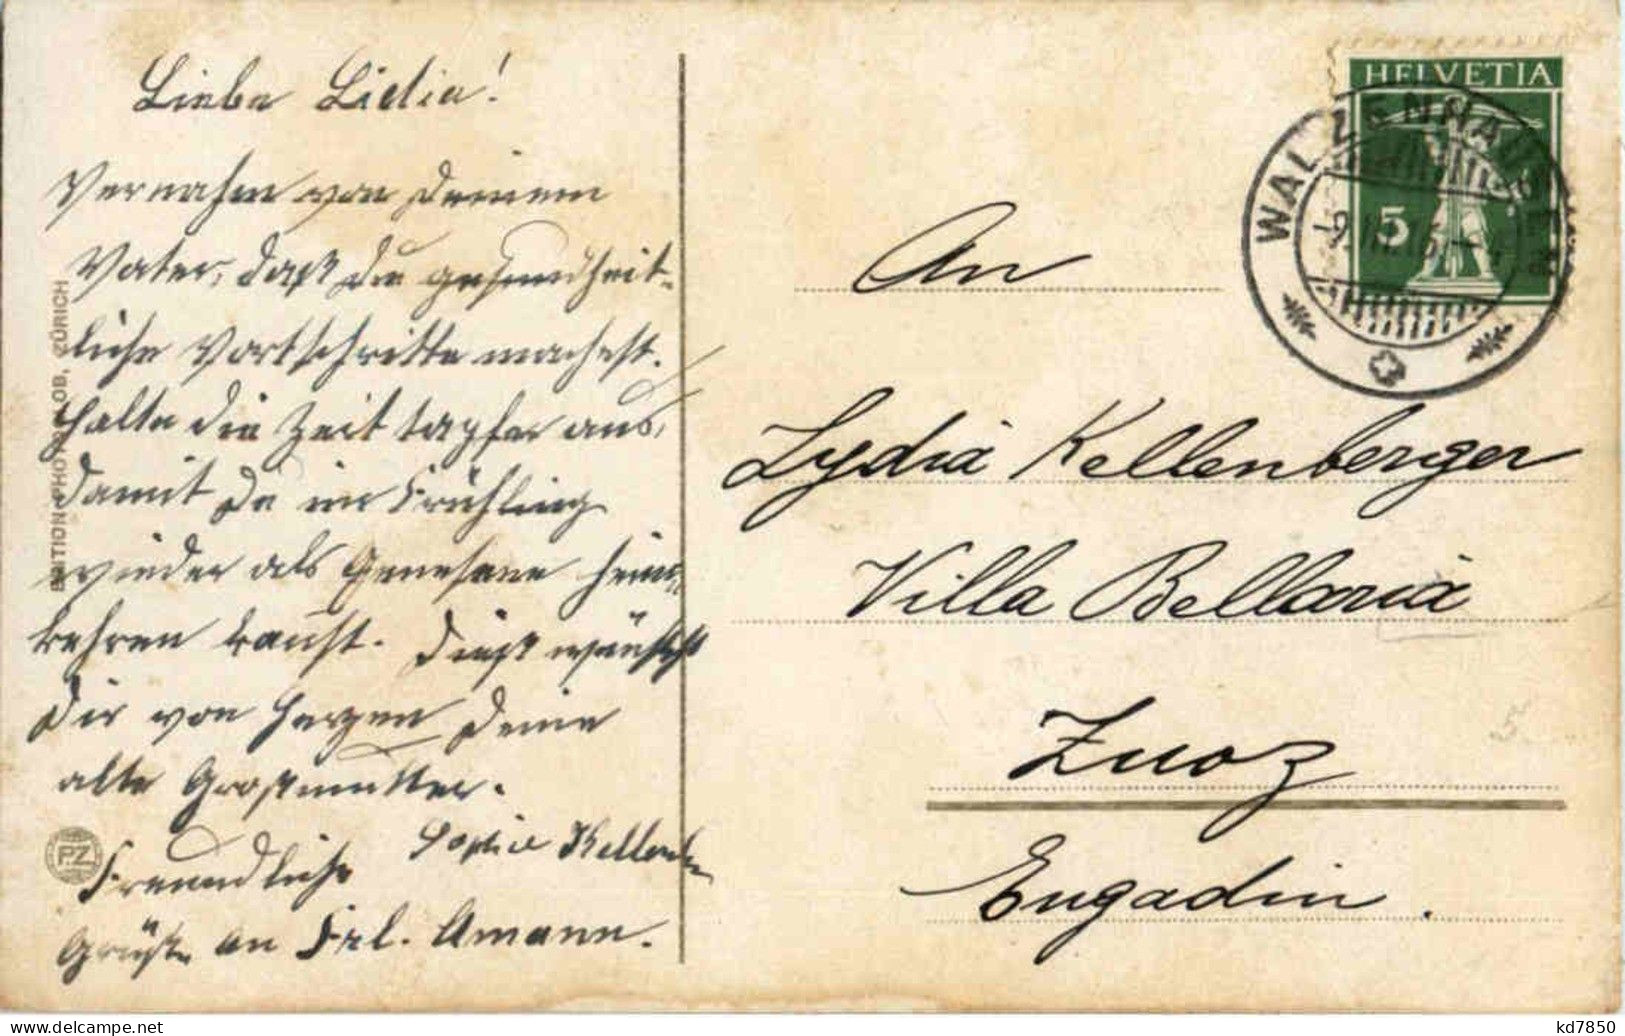 Liebe Lidia!
Vernahm von Deinem
Vater, daß Du gesundheit-
liche Fortschritte machest.
Halte die Zeit tapfer aus,
damit Du im Frühling
wieder als Genesene heim-
kehren kanst. Dieß wünscht
Dir von Herzen Deine
alte Großmutter.
Sophie Kellenber
Freundliche
Grüße an Frl. Amann.
EDITION PHOTOGLOB, ZÜRICH
PZ
HELVETIA
5
WALZENHAUSEN
An
Lydia Kellenberger
Villa Bellaria
Zuoz
Engadin.
5
kd7850